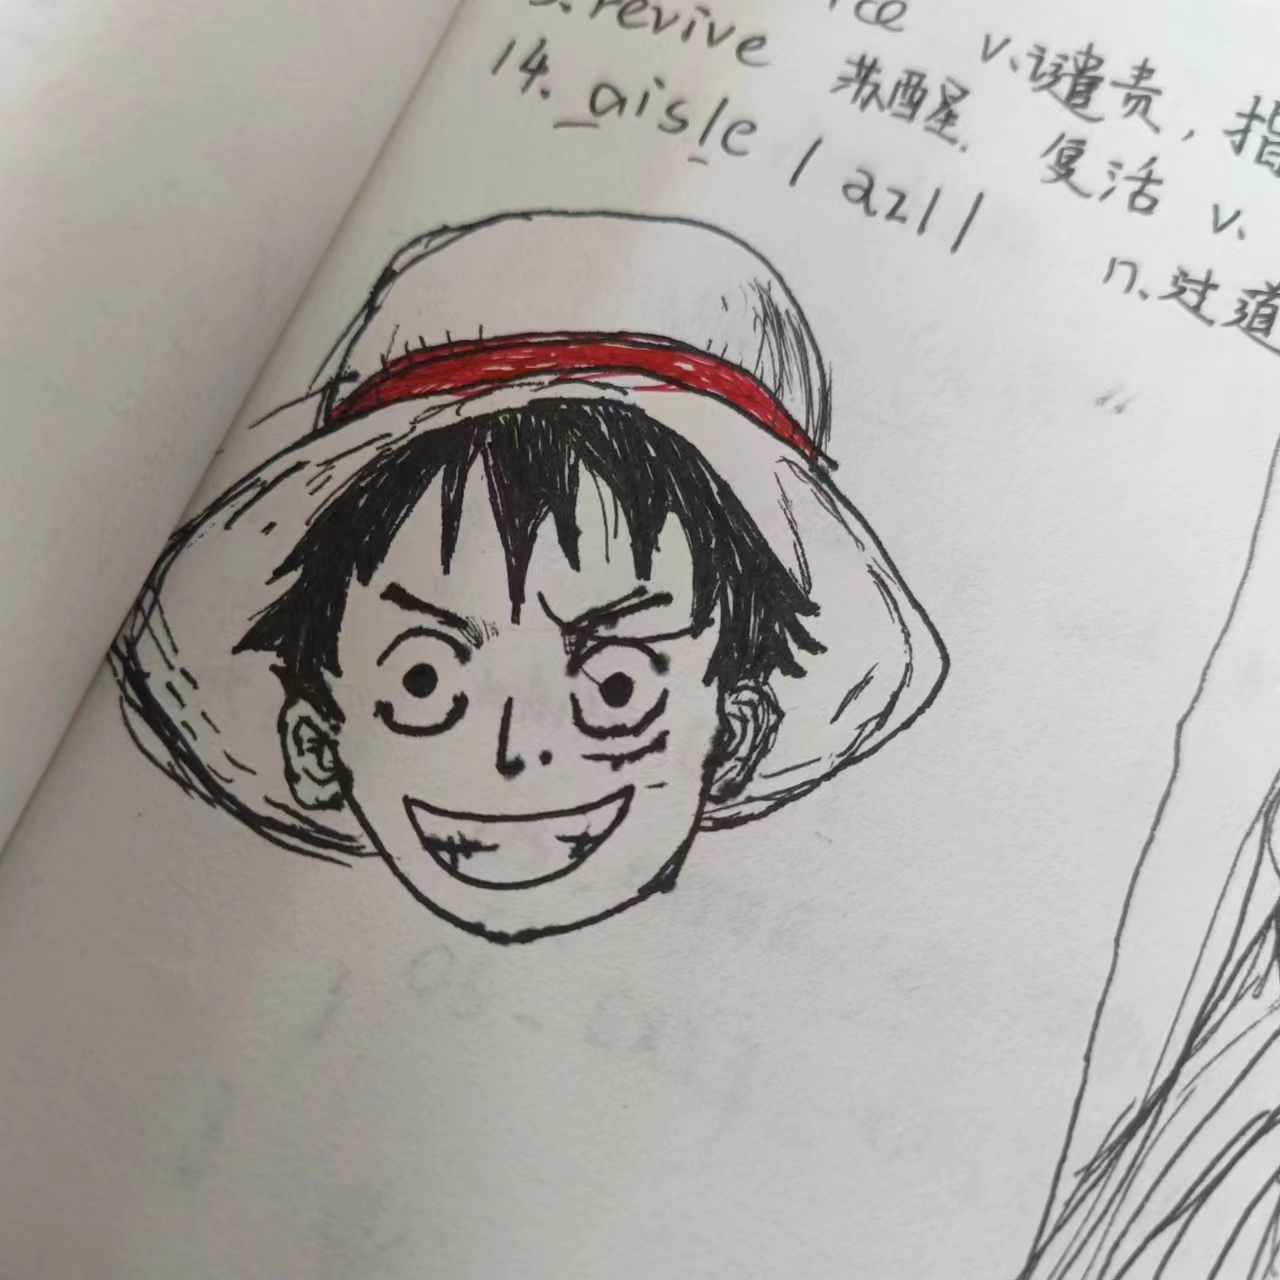 v.谴责,指
revive 苏酉星. 复活 v.
14. aisle / azl / n.过道